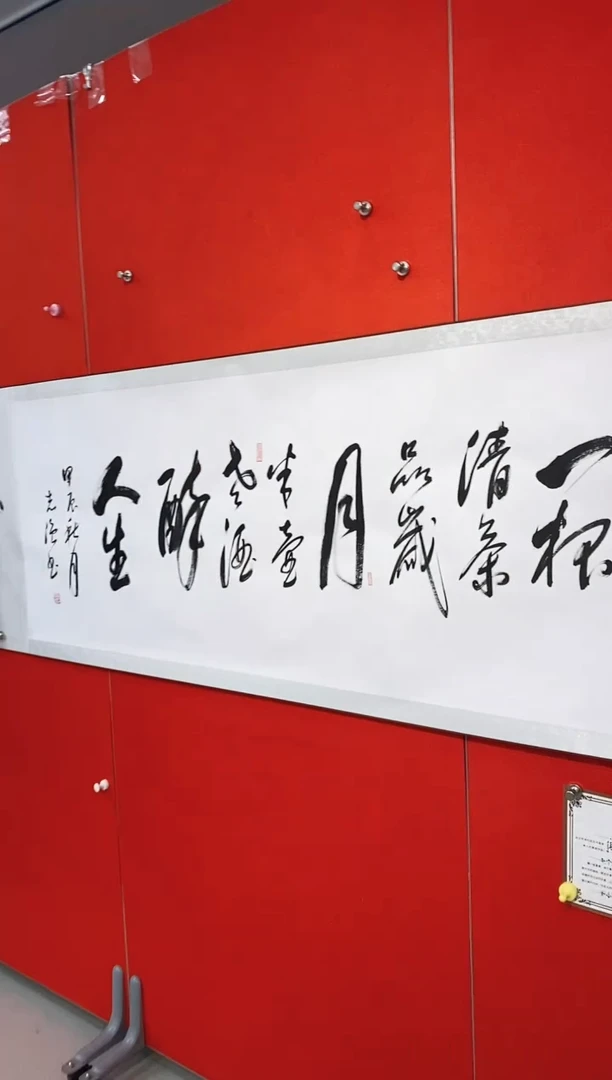 一杯
清茶
品歲
月
半壺
老酒
醉
人生
甲辰秋月